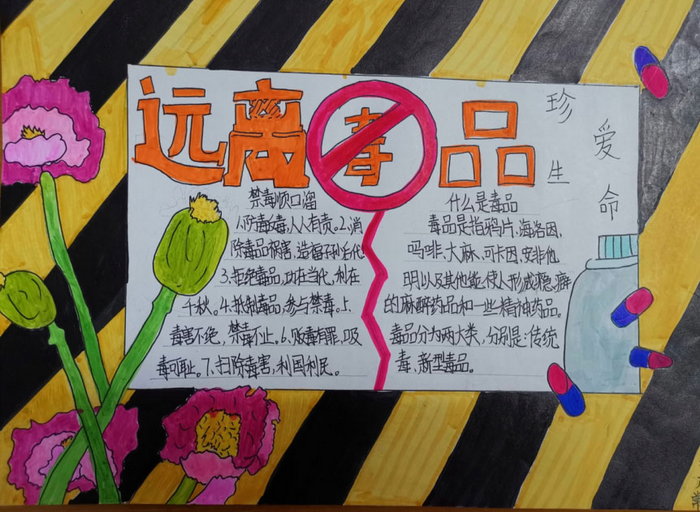 远离毒品
珍爱生命
禁毒顺口溜
1.防毒反毒,人人有责。2.消
除毒品祸害,造福子孙后代
3.拒绝毒品,功在当代,利在
千秋。4.抵制毒品,参与禁毒。5.
毒害不绝,禁毒不止。6.贩毒有罪,吸
毒可耻。7.扫除毒害,利国利民。
什么是毒品
毒品是指鸦片,海洛因,
吗啡、大麻、可卡因、安非他
明以及其他能使人形成瘾癖
的麻醉药品和一些精神药品。
毒品分为两大类,分别是:传统
毒、新型毒品。